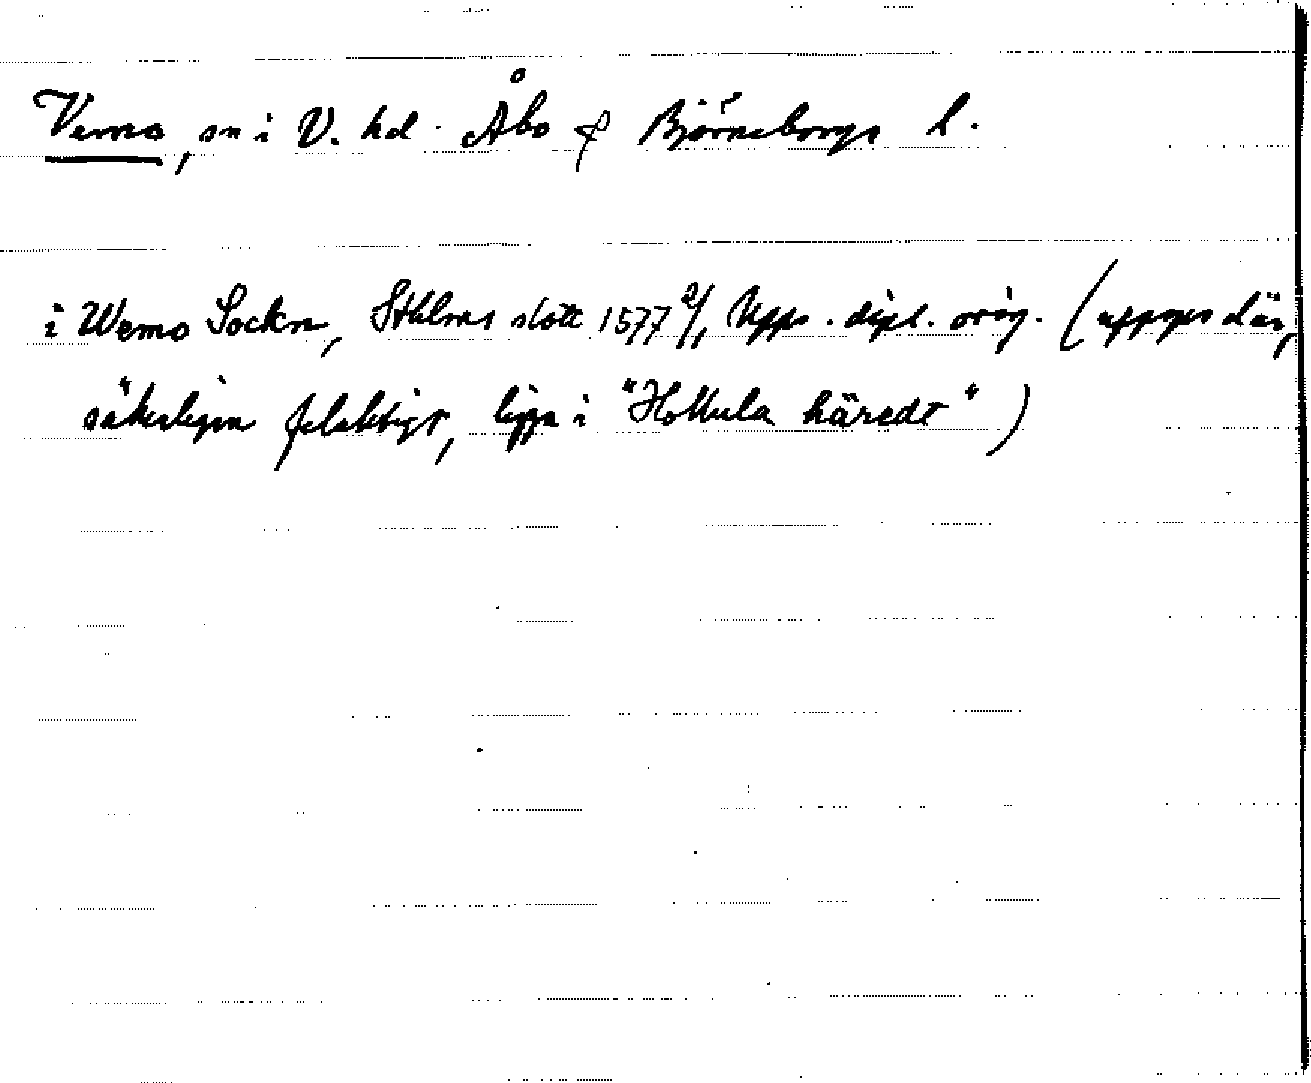 Vemo, sn i V. hd. Åbo & Björneborgs l.
i Wemo Sockn, Sthlms slott 1577 2/1 Upps. dipl. orig. (uppges där,
säkerligen felaktigt, ligga i "Hollula häredt")